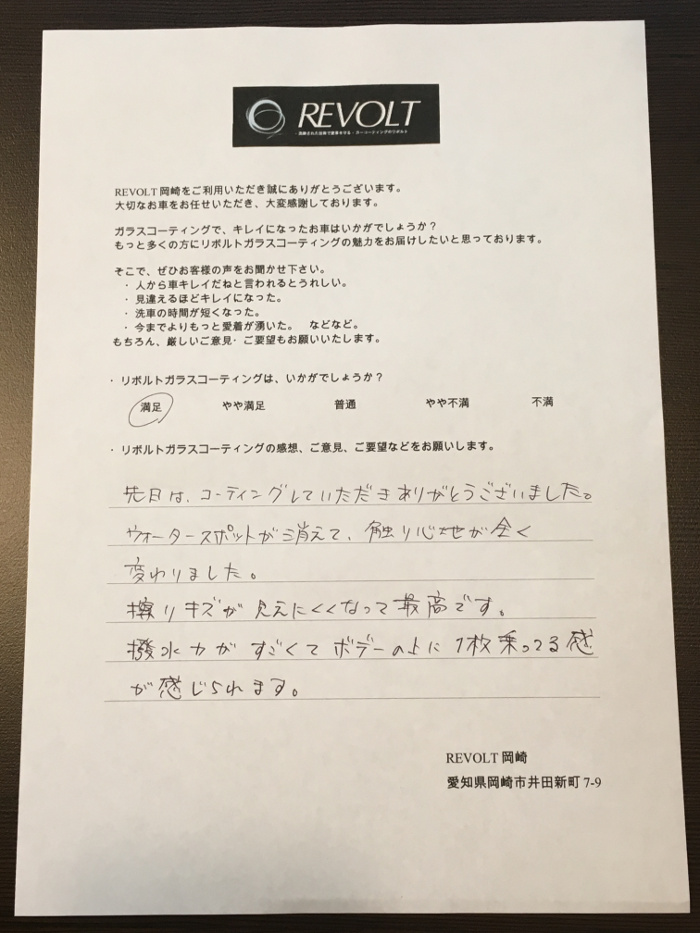 REVOLT
REVOLT 岡崎をご利用いただき誠にありがとうございます。
大切なお車をお任せいただき、大変感謝しております。
ガラスコーティングで、キレイになったお車はいかがでしょうか？
もっと多くの方にリボルトガラスコーティングの魅力をお届けしたいと思っております。
そこで、ぜひお客様の声をお聞かせ下さい。
・人から車キレイだねと言われるとうれしい。
・見違えるほどキレイになった。
・洗車の時間が短くなった。
・今までよりもっと愛着が湧いた。 などなど。
もちろん、厳しいご意見・ご要望もお願いいたします。
・リボルトガラスコーティングは、いかがでしょうか？
満足 やや満足 普通 やや不満 不満
・リボルトガラスコーティングの感想、ご意見、ご要望などをお願いします。
先日は、コーティングしていただきありがとうございました。
ウォータースポットが消えて、触り心地が全く
変わりました。
擦りキズが見えにくくなって最高です。
撥水力がすごくてボデーの上に1枚乗ってる感
が感じられます。
REVOLT 岡崎
愛知県岡崎市井田新町 7-9